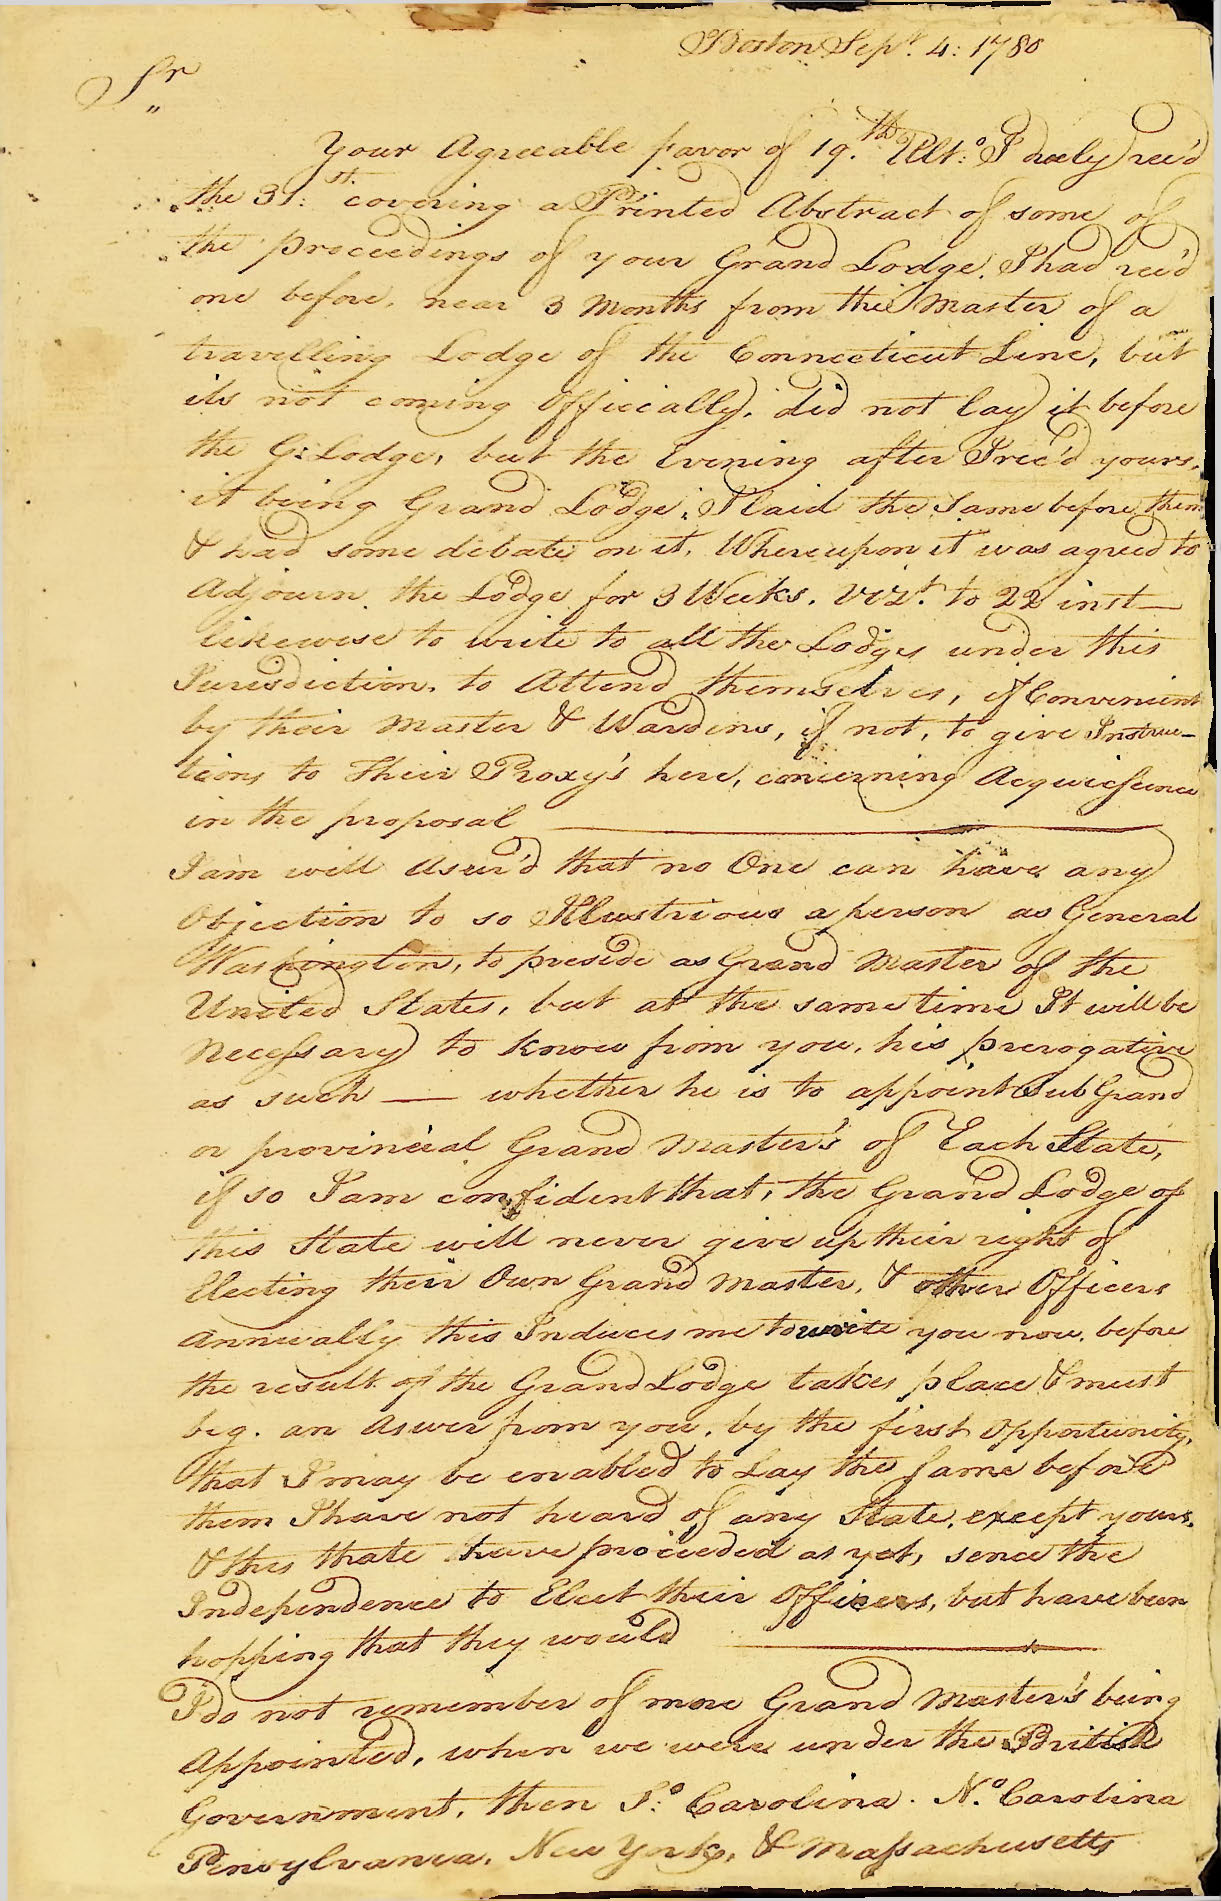 Boston Sepr. 4: 1780
Sr
"
Your Agreeable favor of 19.th Ult:o I duely rec'd
the 31:st covering a Printed Abstract of some of
the proceedings of your Grand Lodge. I had rec'd
one before. near 3 Months from the Master of a
travelling Lodge of the Connecticut Line, but
its not coming Officially. did not lay it before
the G: Lodge, but the Evening after I rec'd yours,
it being Grand Lodge. I laid the Same before them
& had some debate on it. Whereupon it was agreed to
Adjourn the Lodge for 3 Weeks. Vizt. to 22 inst—
likewise to write to all the Lodges under this
Jurisdiction. to Attend themselves, if Convenient
by their Master & Wardens, if not, to give Instruc-
tions to Their Proxy's here, concerning Acquiescence
in the proposal —
I am well Asur'd that no One can have any
Objection to so Illustrious a person as General
Washington, to preside as Grand Master of the
United States, but at the same time It will be
Necessary to know from you. his prerogative
as such — whether he is to appoint Sub Grand
or provincial Grand Master's of Each State,
if so I am confident that, the Grand Lodge of
this State will never give up their right of
Electing their Own Grand Master, & other Officers
Annually this Induces me to write you now. before
the result of the Grand Lodge takes place & must
beg. an Aswer from you, by the first Opportunity,
that I may be enabled to Lay the same before
them I have not heard of any State. except yours.
& this thate have proceeded as yet, sence the
Independence to Elect their Officers, but have been
hopping that they would —
I do not remember of more Grand Master's being
Appointed, when we were under the British
Government, then S:o Carolina. N.o Carolina
Pensylvania, New York, & Massachusetts